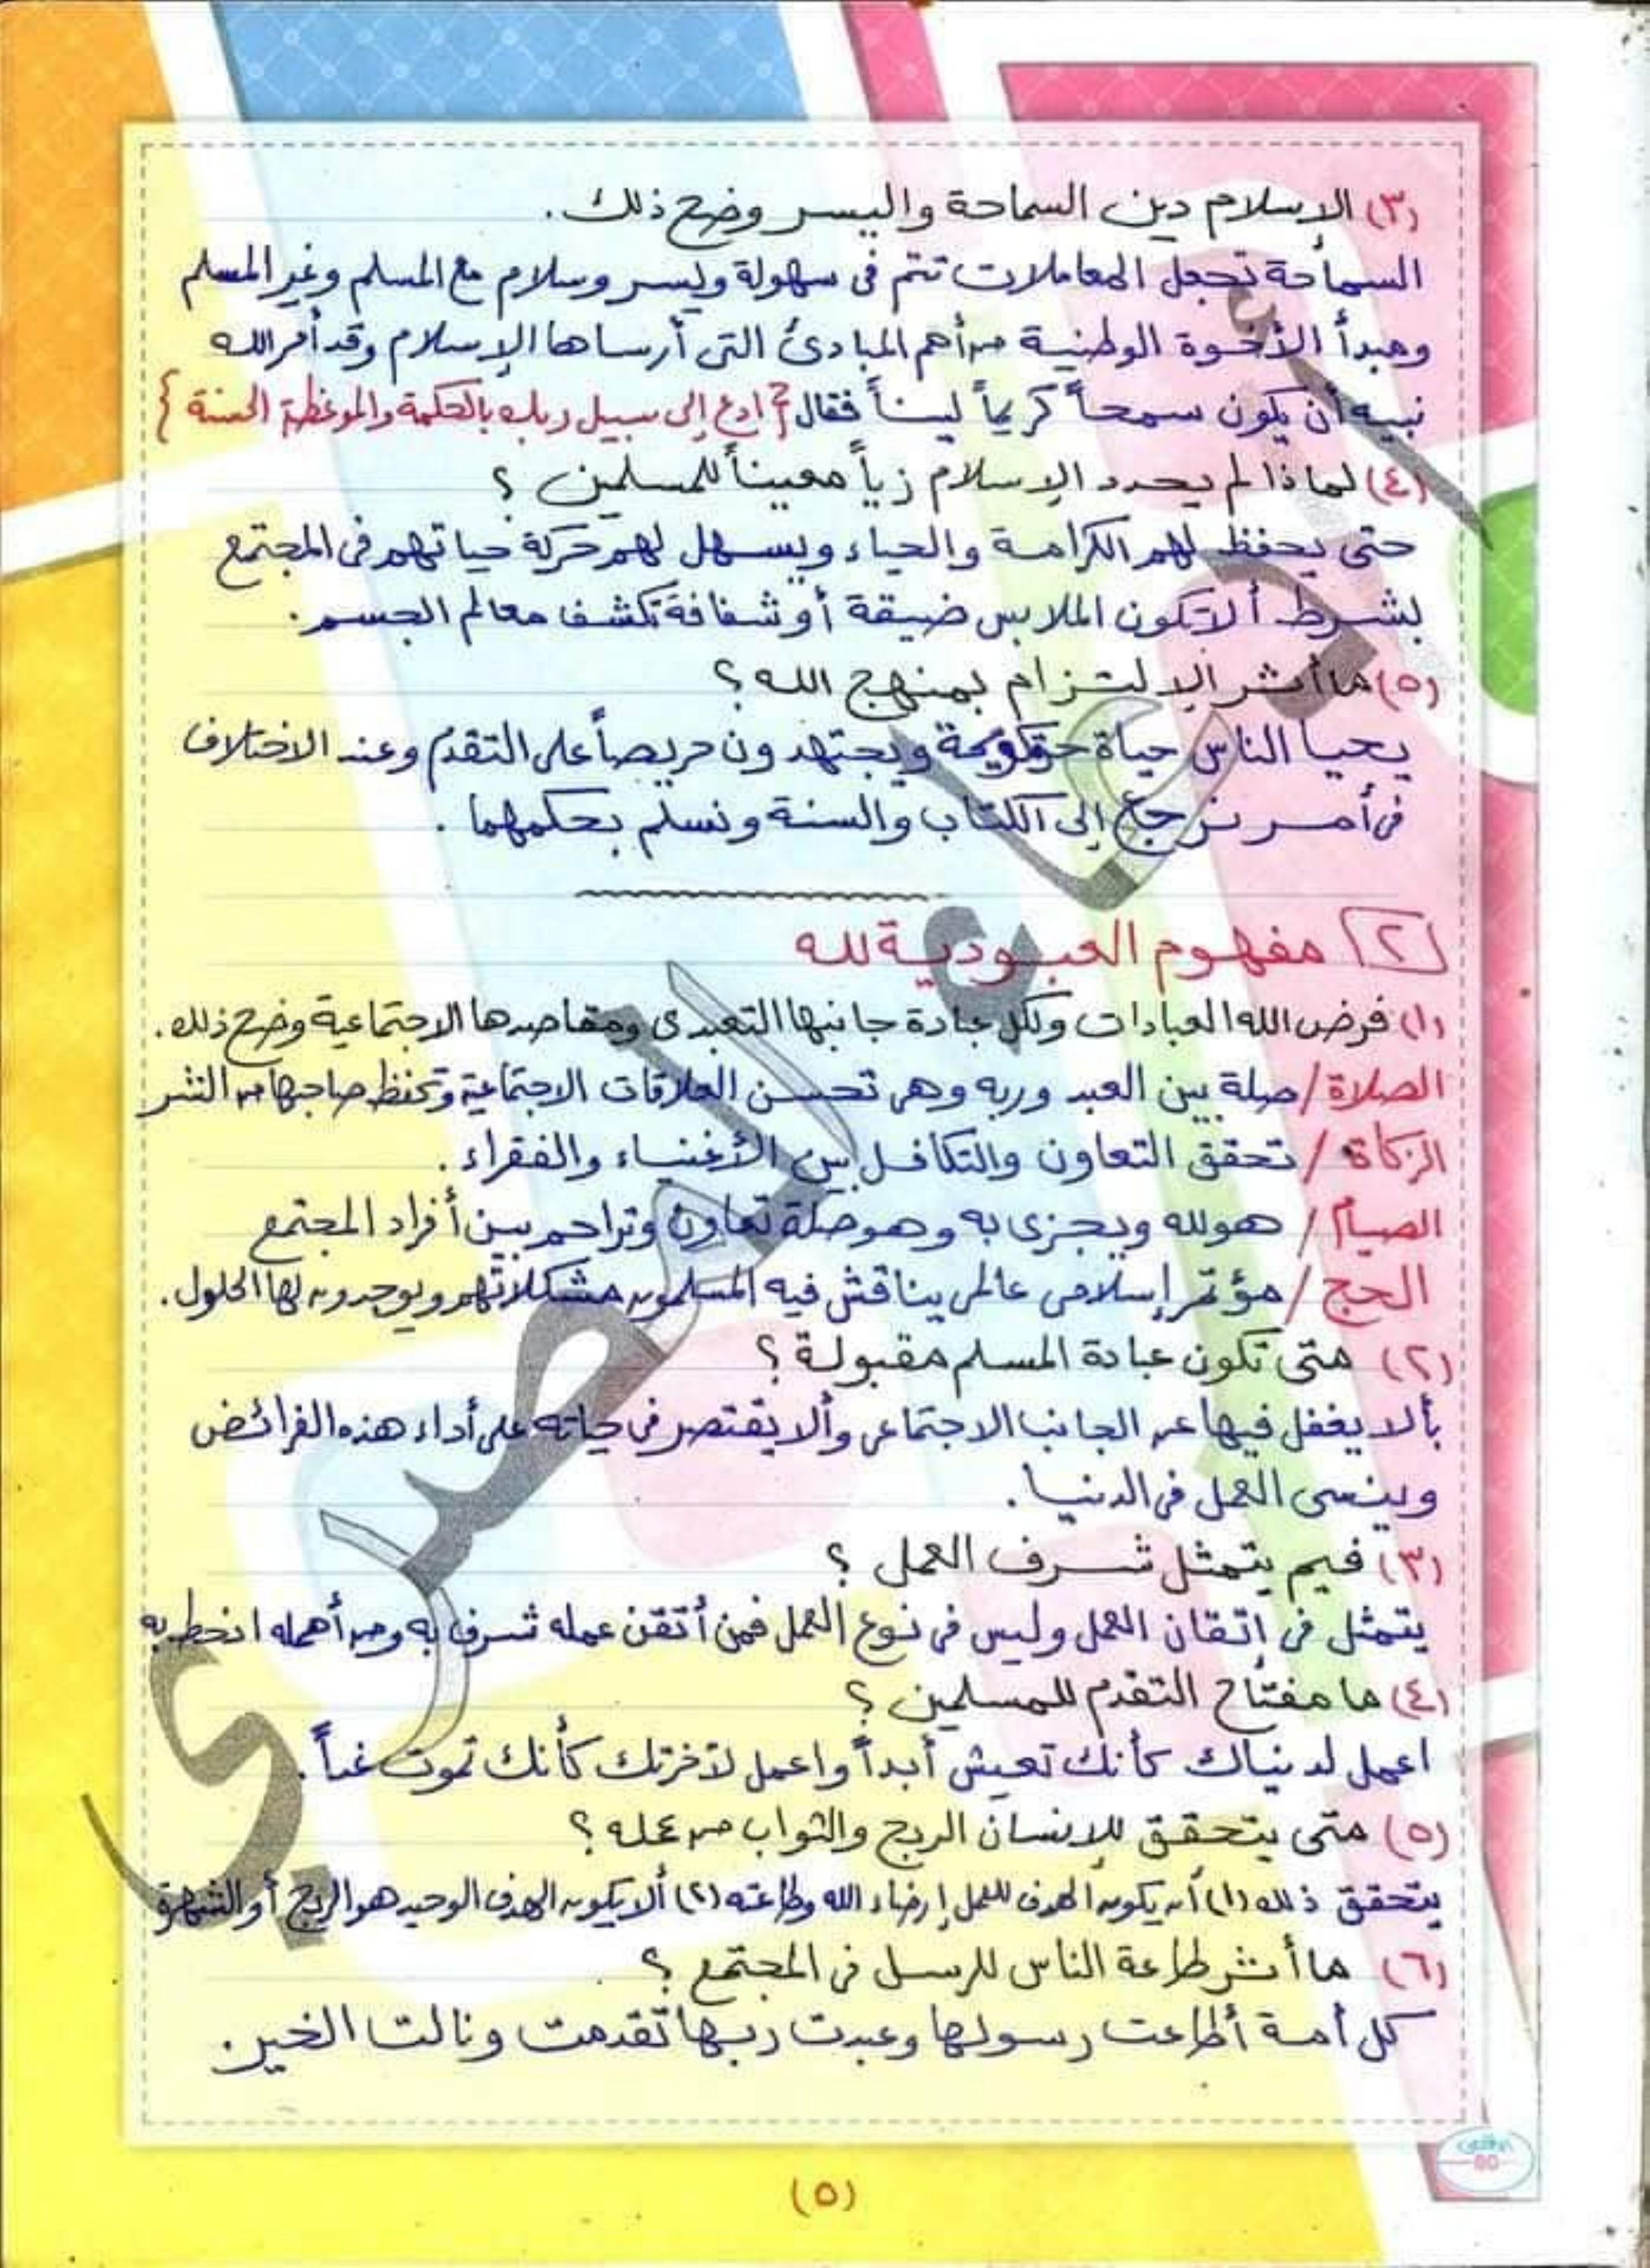 (٣) الإسلام دين السماحة واليسر وضح ذلك.
السماحة تجعل المعاملات تتم فى سهولة ويسر وسلام مع المسلم وغير المسلم
ومبدأ الأخوة الوطنية من أهم المبادئ التى أرساها الإسلام وقد أمر الله
نبيه أن يكون سمحاً كريماً ليناً فقال {ادع إلى سبيل ربك بالحكمة والموعظة الحسنة}
(٤) لماذا لم يحدد الإسلام زياً معيناً للمسلمين ؟
حتى يحفظ لهم الكرامة والحياء ويسهل لهم حركة حياتهم فى المجتمع
بشرط ألا تكون الملابس ضيقة أو شفافة تكشف معالم الجسم.
(٥) ما أثر الإلتزام بمنهج الله ؟
يحيا الناس حياة ويجتهدون حريصاً على التقدم وعند الاختلاف
فى أمر نرجع إلى الكتاب والسنة ونسلم بحكمهما .
[٢] مفهوم العبودية لله
(١) فرض الله العبادات ولكل عبادة جانبها التعبدى ومقاصدها الاجتماعية وضح ذلك.
الصلاة / صلة بين العبد وربه وهى تحسن العلاقات الاجتماعية وتحفظ صاحبها من الشر
الزكاة / تحقق التعاون والتكافل بين الأغنياء والفقراء .
الصيام / هو لله ويجزى به وهو صلة تعاون وتراحم بين أفراد المجتمع
الحج / مؤتمر إسلامى عالمى يناقش فيه المسلمون مشكلاتهم ويوجدون لها الحلول.
(٢) متى تكون عبادة المسلم مقبولة ؟
بألا يغفل فيها عن الجانب الاجتماعى وألا يقتصر فى حياته على أداء هذه الفرائض
وينسى العمل فى الدنيا .
(٣) فيم يتمثل شرف العمل ؟
يتمثل فى اتقان العمل وليس فى نوع العمل فمن أتقن عمله شرف به ومن أهمله انحط به
(٤) ما مفتاح التقدم للمسلمين ؟
اعمل لدنياك كأنك تعيش أبداً واعمل لآخرتك كأنك تموت غداً .
(٥) متى يتحقق للإنسان الربح والثواب من عمله ؟
يتحقق ذلك (١) أن يكون الهدف للعمل إرضاء الله وطاعته (٢) ألا يكون الهدف الوحيد هو الربح أو الشهرة
(٦) ما أثر طاعة الناس للرسل فى المجتمع ؟
كل أمة أطاعت رسولها وعبدت ربها تقدمت ونالت الخير.
(٥)